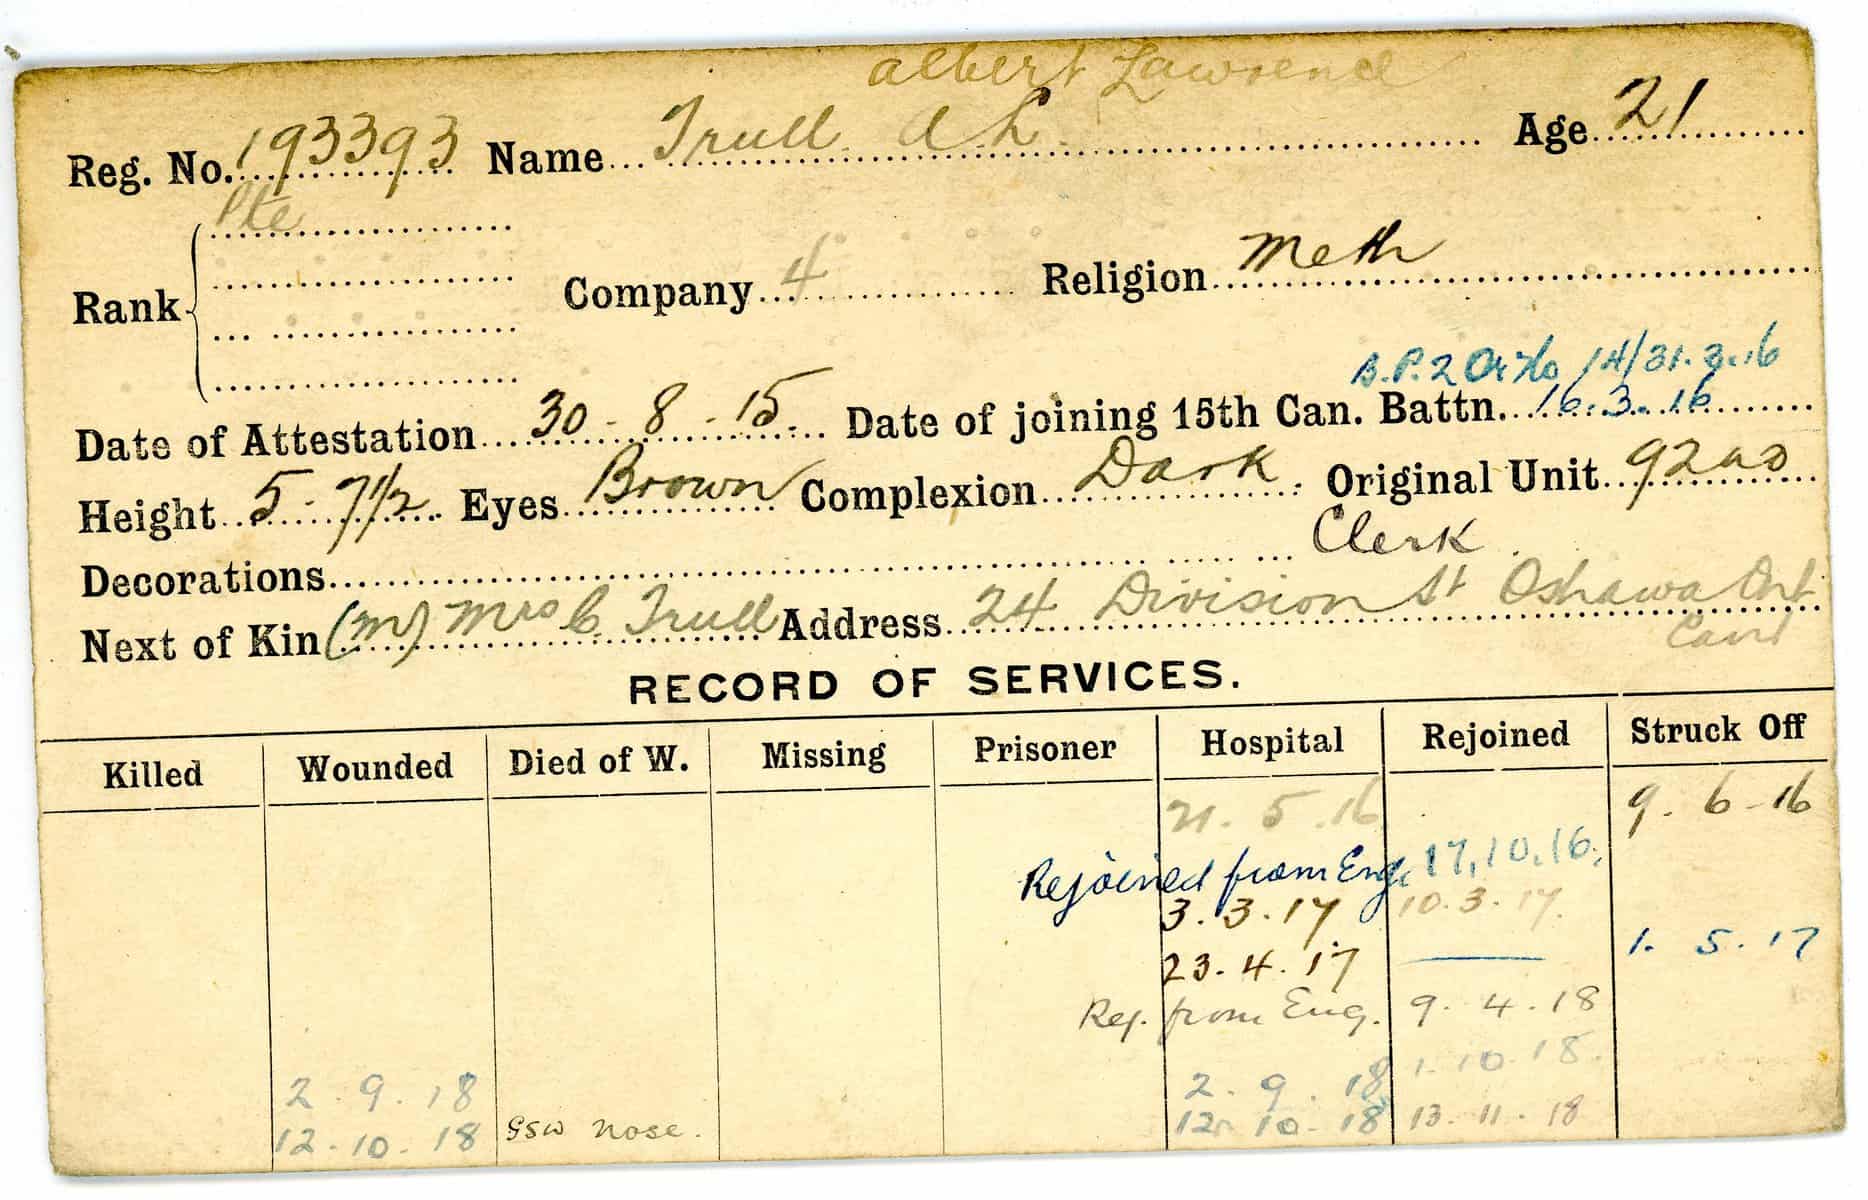 Albert Lawrence
Reg. No. 193393 Name Trull A L Age 21
Pte
Rank Company 4 Religion Meth
B.P. 2 O 14/31.3.16
Date of Attestation 30 - 8 - 15. Date of joining 15th Can. Battn. 16.3.16
Height 5 - 7 1/2 Eyes Brown Complexion Dark Original Unit 92nd
Decorations Clerk
Next of Kin (M) Mrs C. Trull Address 24 Division St Oshawa Ont
Can
RECORD OF SERVICES.
Killed Wounded Died of W. Missing Prisoner Hospital Rejoined Struck Off
21. 5. 16 9. 6 - 16
Rejoined from Eng. 17.10.16.
3. 3. 17 10. 3. 17.
23. 4. 17 — 1. 5. 17
Rej. from Eng. 9. 4. 18
2. 9. 18 2. 9. 18 1. 10. 18.
12. 10. 18 GSW Nose. 12. 10. 18 13. 11. 18